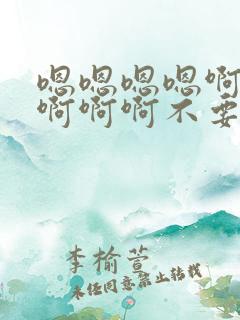 嗯嗯嗯嗯啊
啊啊啊不要
李榆萱
未经同意禁止转载